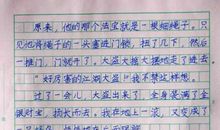 原来，他的那个法宝就是一根细绳子。只
见他将绳子的一头塞进门锁，扭了几下，然后
一推门，门就开了，大盗大摇大摆地走了进去
"好厉害的江洋大盗！"我不禁这样想。
过了一会儿，大盗出来了，全身是满了金
银财宝，扬长而去。我在地上一滚，又变成了